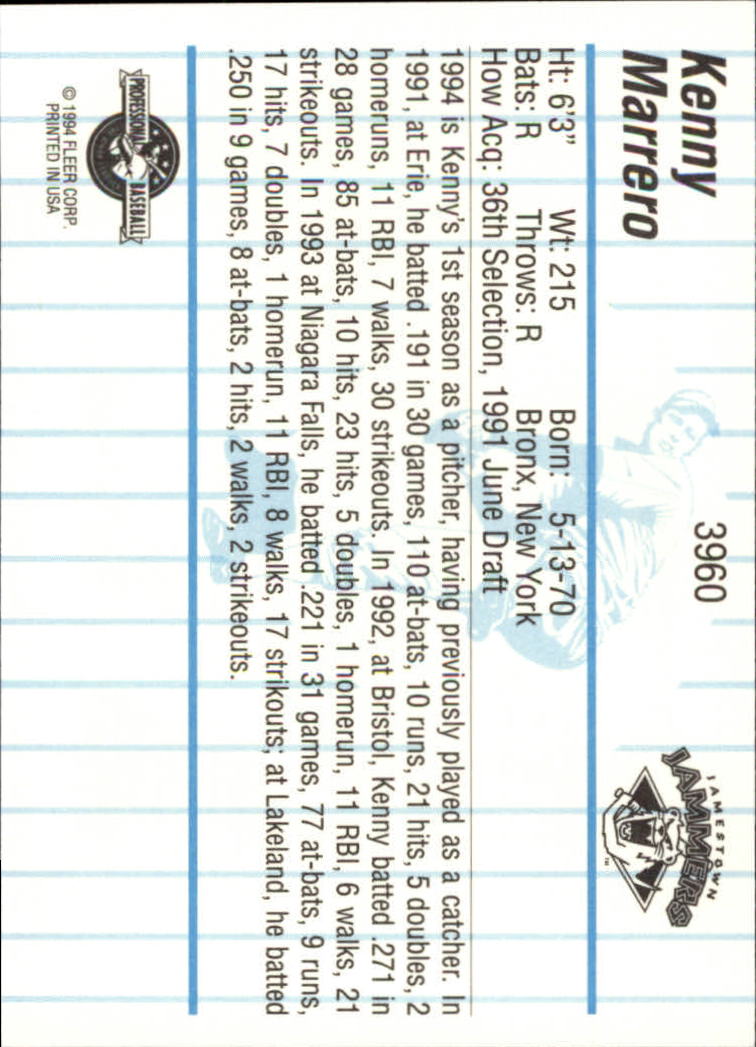 Kenny
Marrero
3960
JAMESTOWN
JAMMERS
TM
Ht: 6'3" Wt: 215 Born: 5-13-70
Bats: R Throws: R Bronx, New York
How Acq: 36th Selection, 1991 June Draft
1994 is Kenny's 1st season as a pitcher, having previously played as a catcher. In
1991, at Erie, he batted .191 in 30 games, 110 at-bats, 10 runs, 21 hits, 5 doubles, 2
homeruns, 11 RBI, 7 walks, 30 strikeouts. In 1992, at Bristol, Kenny batted .271 in
28 games, 85 at-bats, 10 hits, 23 hits, 5 doubles, 1 homerun, 11 RBI, 6 walks, 21
strikeouts. In 1993 at Niagara Falls, he batted .221 in 31 games, 77 at-bats, 9 runs,
17 hits, 7 doubles, 1 homerun, 11 RBI, 8 walks, 17 strikouts; at Lakeland, he batted
.250 in 9 games, 8 at-bats, 2 hits, 2 walks, 2 strikeouts.
PROFESSIONAL BASEBALL
© 1994 FLEER CORP.
PRINTED IN USA